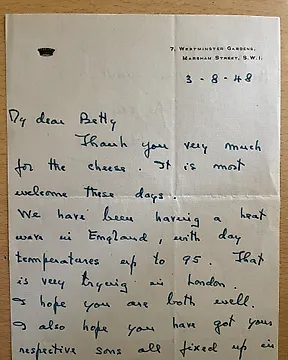 7, Westminster Gardens,
Marsham Street, S.W.1.
3-8-48
My dear Betty
Thank you very much
for the cheese. It is most
welcome these days.
We have been having a heat
wave in England, with day
temperatures up to 95. That
is very trying in London.
I hope you are both well.
I also hope you have got your
respective sons all fixed up in